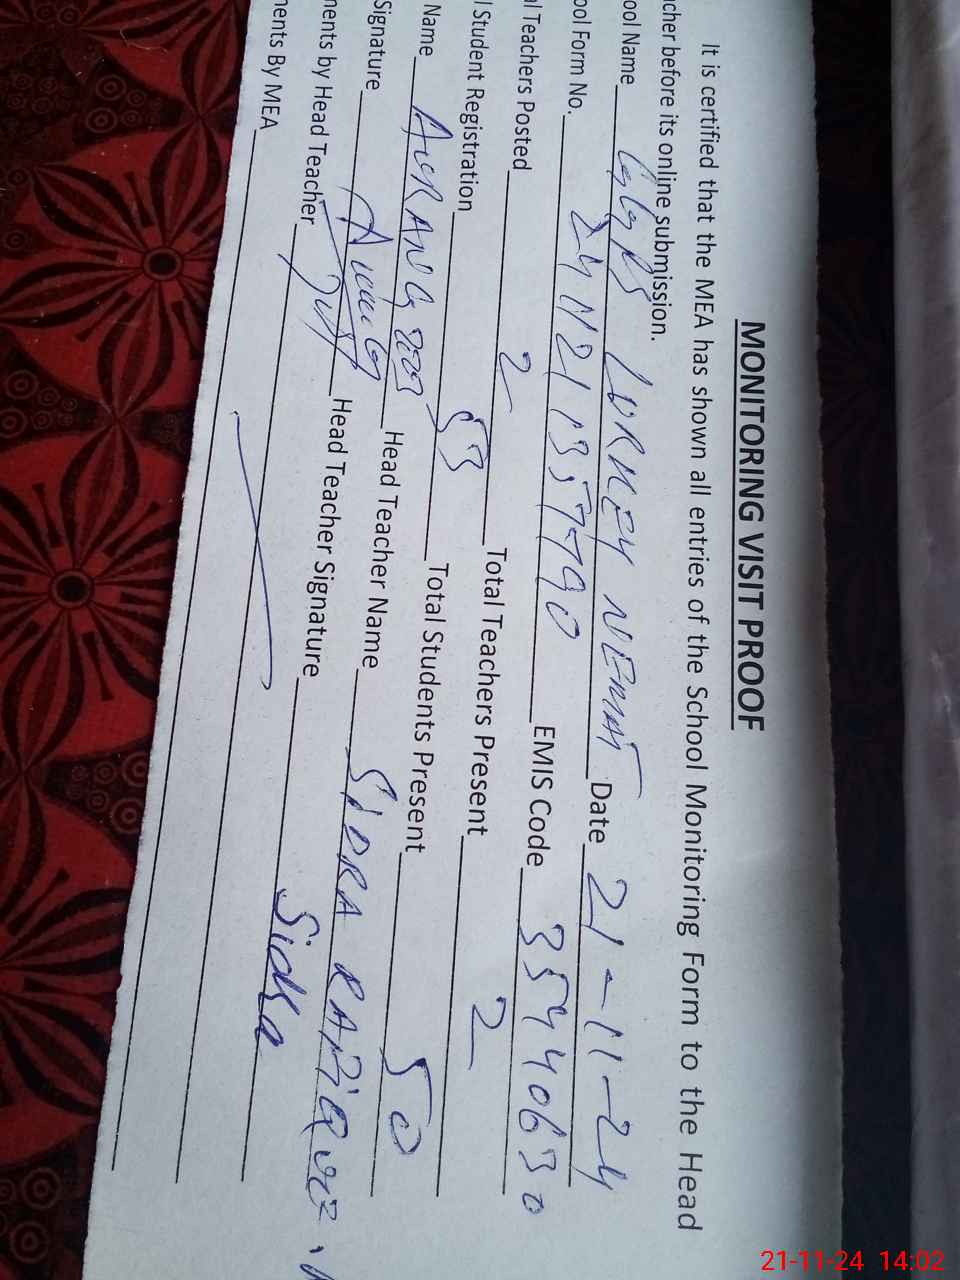 MONITORING VISIT PROOF
It is certified that the MEA has shown all entries of the School Monitoring Form to the Head
cher before its online submission.
ool Name Date 21-11-24
ool Form No. EMIS Code 35440630
l Teachers Posted 2 Total Teachers Present 2
l Student Registration 53 Total Students Present 50
Name Head Teacher Name SIDRA RAFIQUE
Signature Head Teacher Signature Sidra
ments by Head Teacher
ments By MEA
21-11-24 14:02